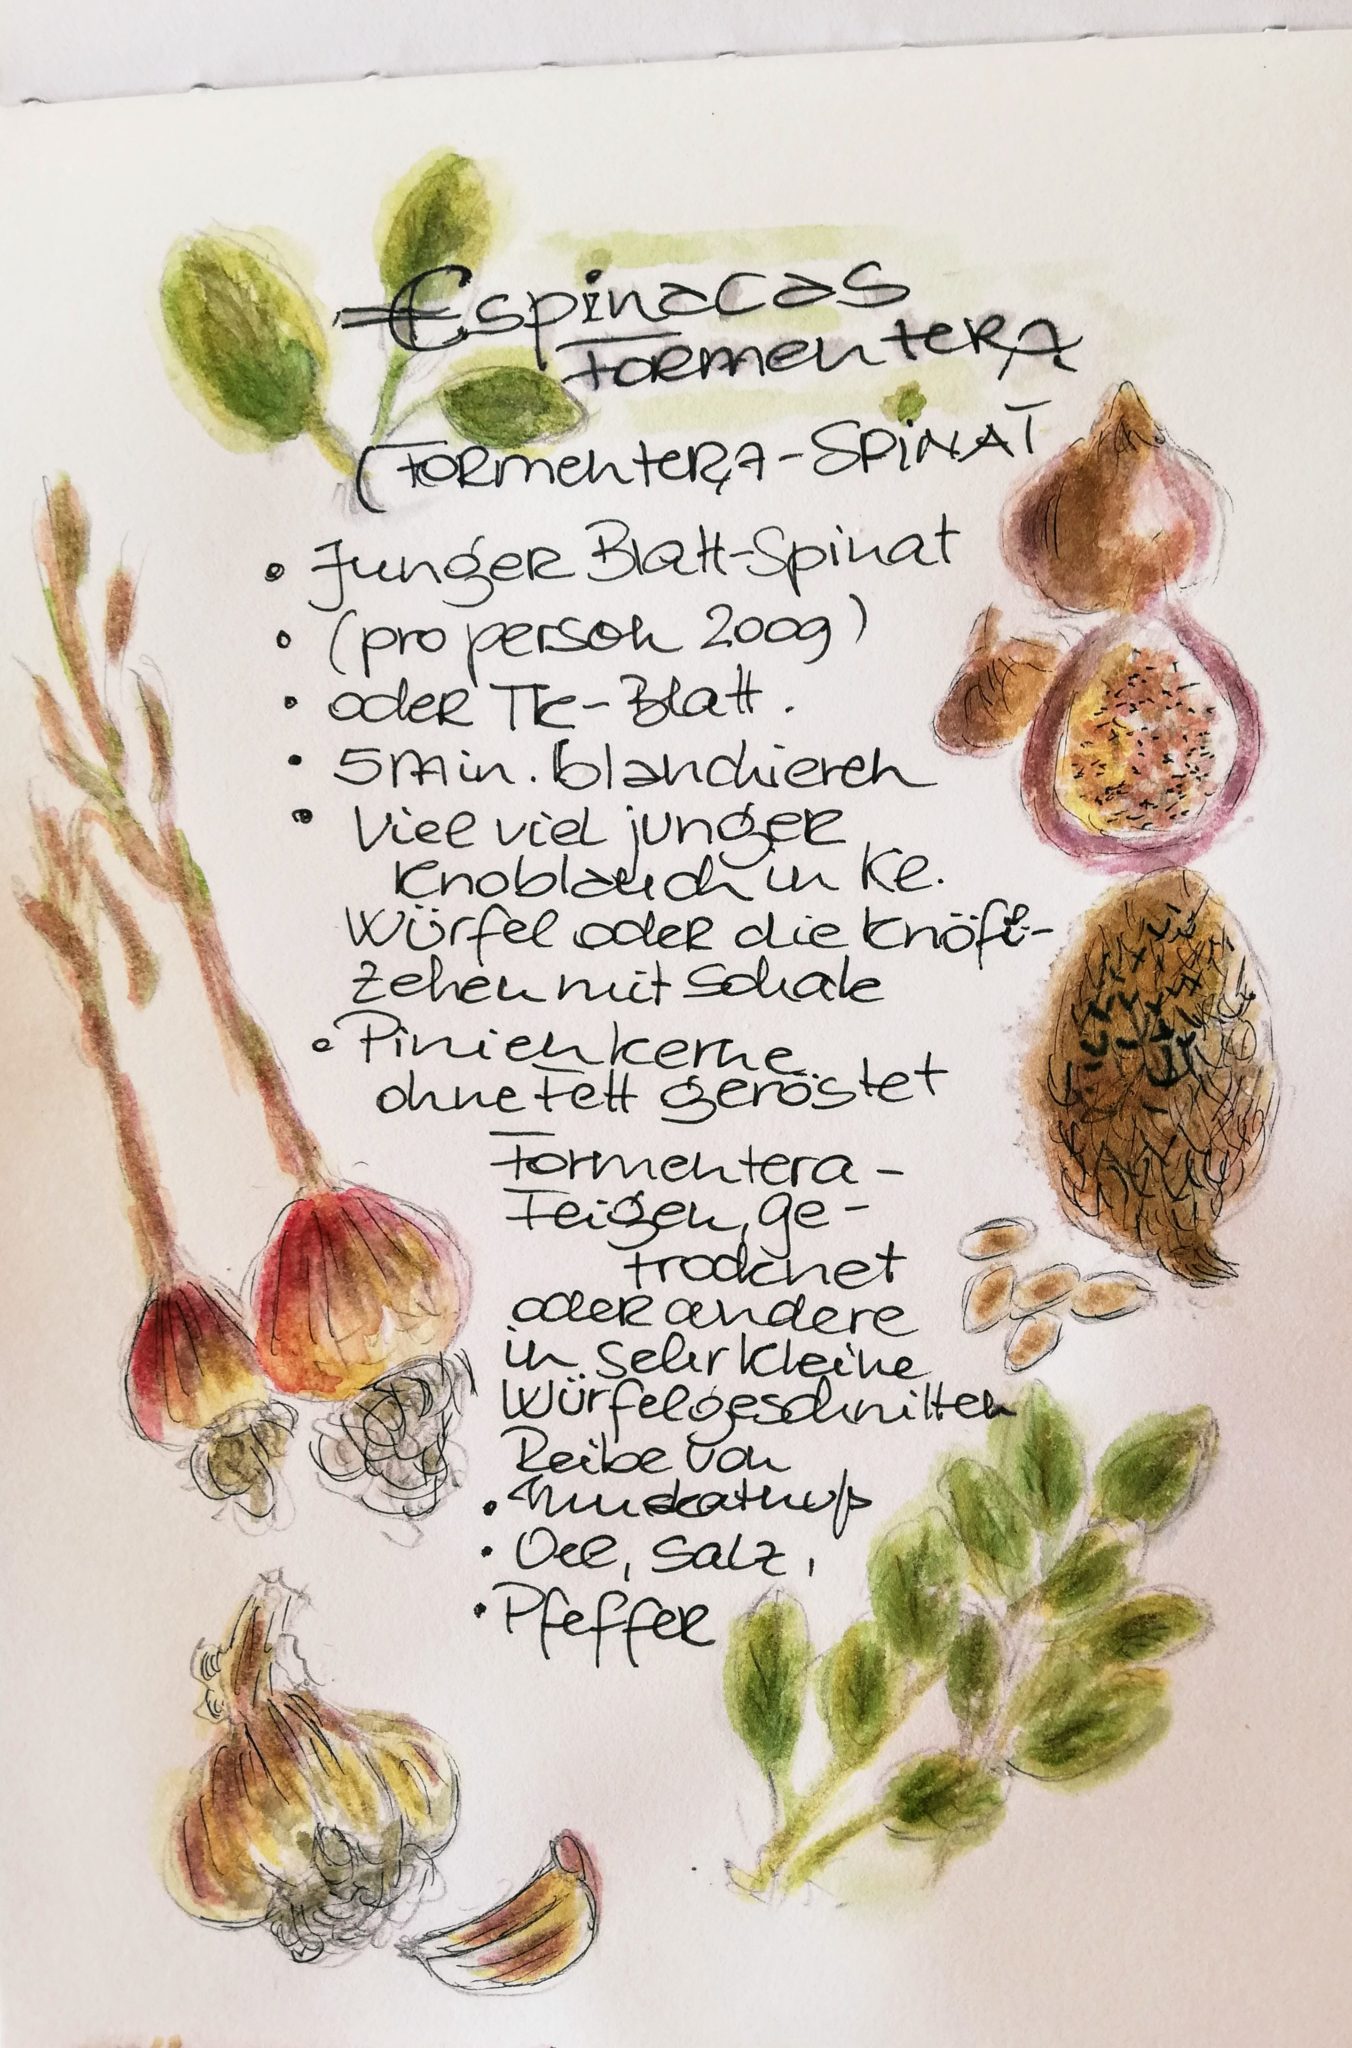 Espinacas
Formentera
(Formentera-Spinat
• Junger Blatt-Spinat
• (pro person 200g)
• oder TK-Blatt.
• 5 Min. blanchieren
• Viel viel junger
Knoblauch in Kl.
Würfel oder die Knöfi-
zehen mit Schale
• Pinienkerne
ohne Fett geröstet
Formentera-
Feigen, ge-
trocknet
oder andere
in sehr kleine
Würfel geschnitten
Reibe von
• Muskatnuß
• Oel, Salz,
• Pfeffer